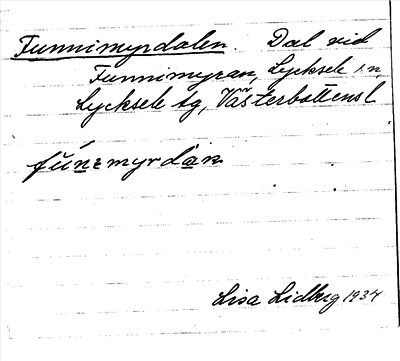 Funnimyrdalen. Dal vid
Funnimyran, Lycksele sn,
Lycksele tg, Västerbottensl
fúnemyrdàn
Lisa Lidberg 1934